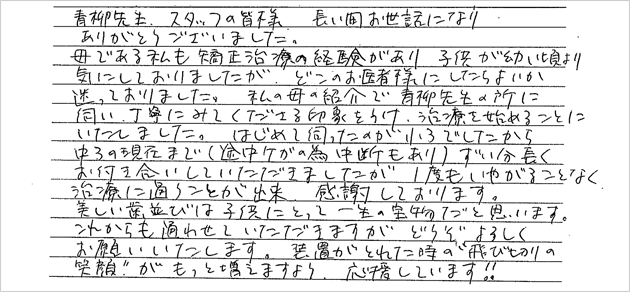 青柳先生、スタッフの皆様　長い間お世話になり
ありがとうございました。
母である私も矯正治療の経験があり　子供が幼い頃より
気にしておりましたが、どこのお医者様にしたらよいか
迷っておりました。私の母の紹介で青柳先生の所に
伺い、丁寧にみてくださる印象をうけ、治療を始めることに
いたしました。はじめて伺ったのが小3でしたから
中3の現在まで(途中ケガの為中断もあり)ずい分長く
お付き合いしていただきましたが 1度もいやがることなく
治療に通うことが出来、感謝しております。
美しい歯並びは子供にとって一生の宝物だと思います。
これからも通わせていただきますが どうぞよろしく
お願いいたします。装置がとれた時の“飛びきりの
笑顔”がもっと増えますよう、応援しています!!